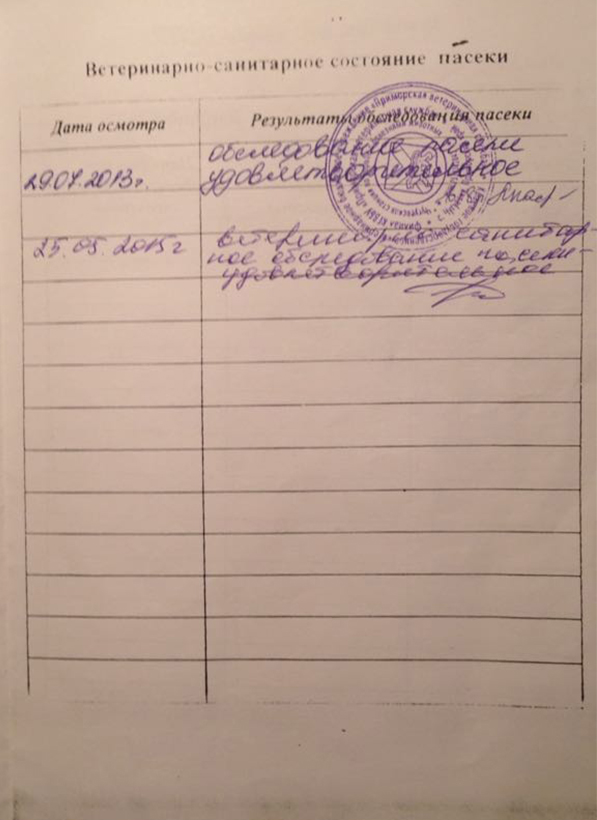 Ветеринарно-санитарное состояние пасеки
Дата осмотра
Результаты обследования пасеки
обследование пасеки
29.07.2013г.
удовлетворительное
25.05.2015г
ветеринарно санитар-
ное обследование пасеки-
удовлетворительное